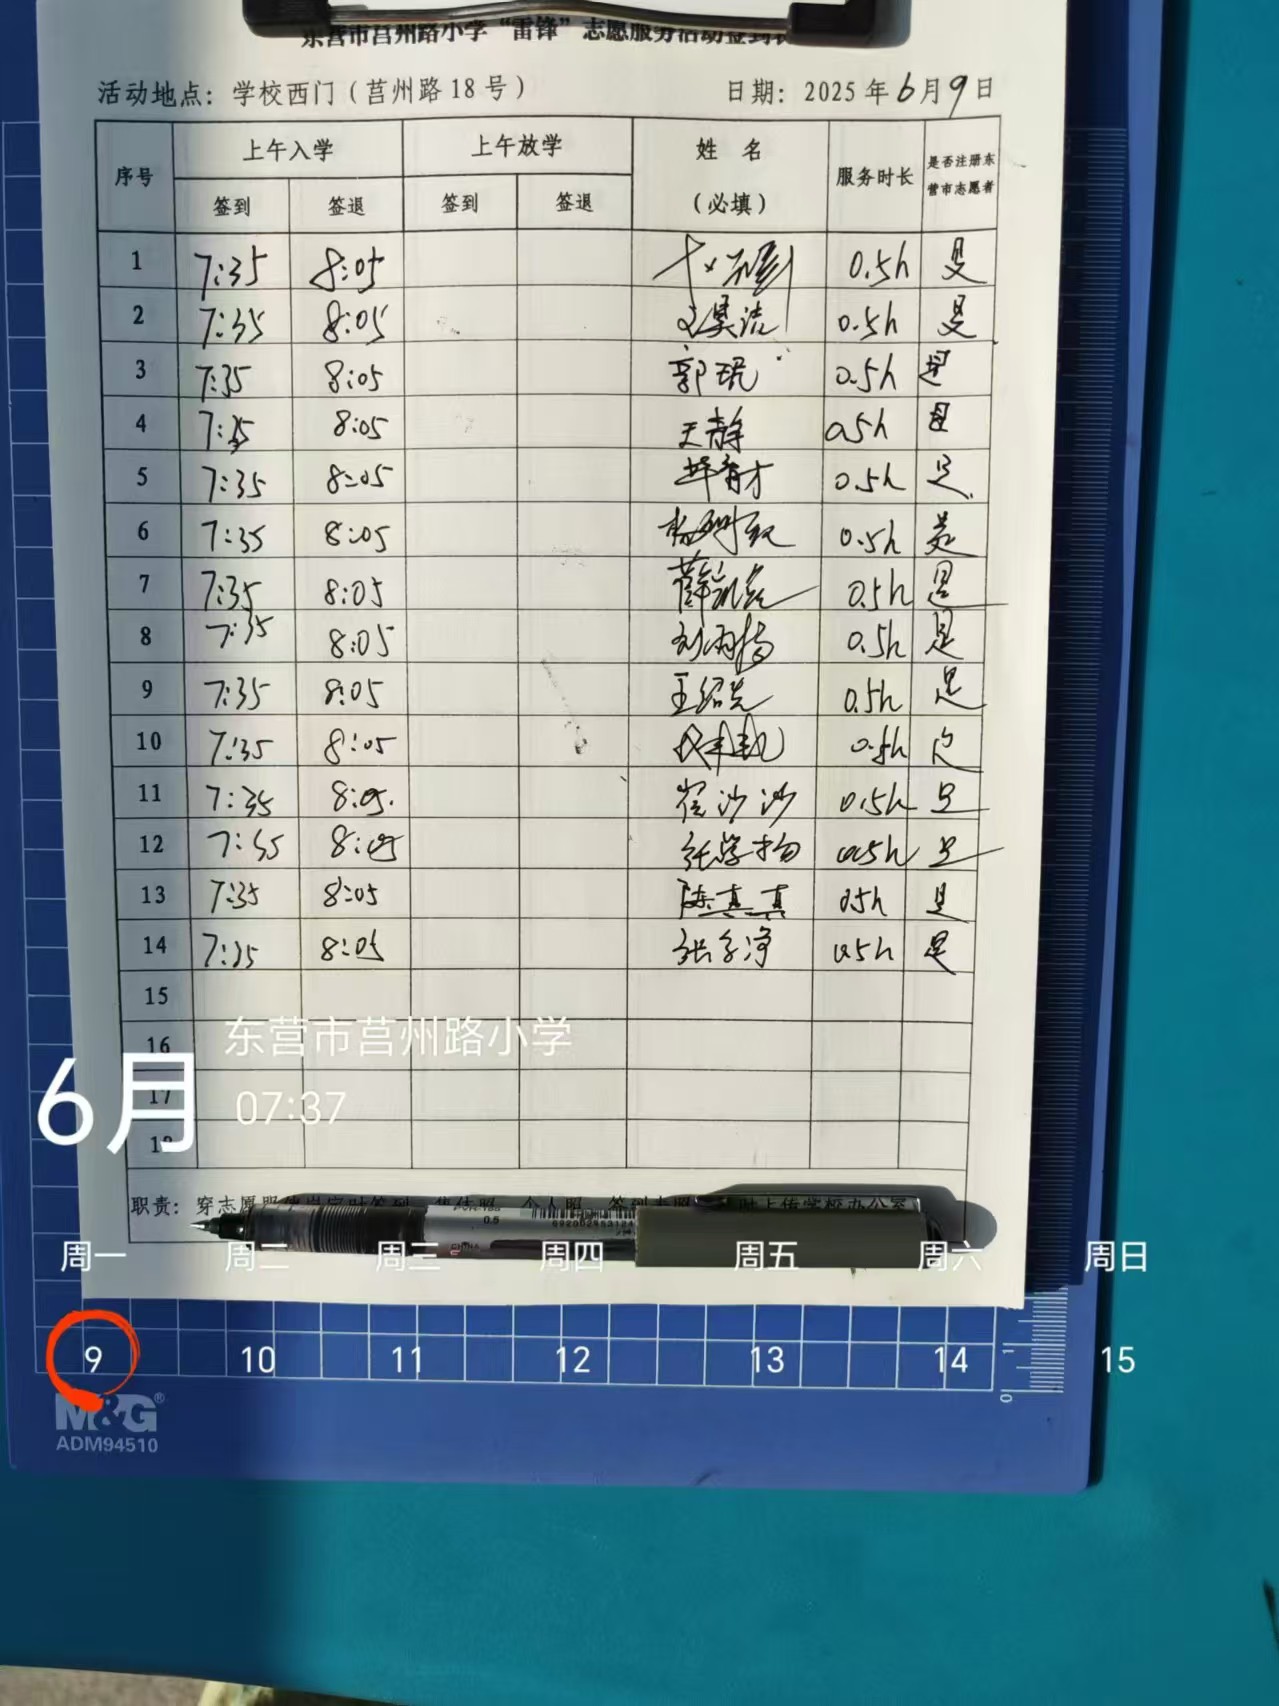 东营市莒州路小学“雷锋”志愿服务活动签到表
活动地点：学校西门（莒州路18号） 日期：2025年6月9日
序号 上午入学 上午放学 姓 名 （必填） 服务时长 是否注册东营市志愿者
签到 签退 签到 签退
1 7:35 8:05 0.5h 是
2 7:35 8:05 0.5h 是
3 7:35 8:05 郭琨 0.5h 是
4 7:35 8:05 王静 0.5h 是
5 7:35 8:05 0.5h 是
6 7:35 8:05 0.5h 是
7 7:35 8:05 0.5h 是
8 7:35 8:05 0.5h 是
9 7:35 8:05 王绍先 0.5h 是
10 7:35 8:05 0.5h 是
11 7:35 8:05. 崔沙沙 0.5h 是
12 7:35 8:05 0.5h 是
13 7:35 8:05 陈真真 0.5h 是
14 7:35 8:05 0.5h 是
15
16
17
18
东营市莒州路小学
6月 07:37
职责：穿志愿服
0.5
CHINA
周一 周二 周三 周四 周五 周六 周日
9 10 11 12 13 14 15
M&G®
ADM94510
1
0